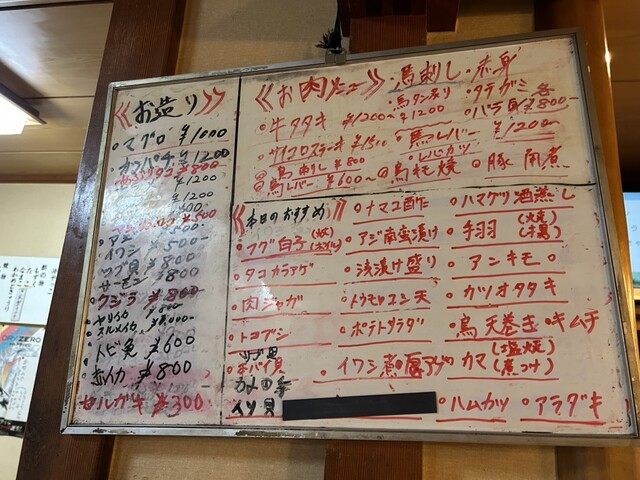 《お造り》
・マグロ ¥1000
・カンパチ ¥1200
¥800
¥1200
¥1200
¥500
・アジ
・イワシ ¥500-
・ツブ貝 ¥800
・サーモン ¥800
・クジラ ¥800-
・ヤリイカ ¥800-
・スルメイカ
・トビ魚 ¥600
・赤イカ ¥800
セルガキ ¥300
《お肉メニュー》・馬刺し・赤身
・牛タタキ ¥1200~
・馬タン炙り ¥1200
・タテガミ 各
・バラ ¥800-
・サイコロステーキ ¥1500
・馬レバー ¥1200-
◎鳥刺し ¥800
◎鳥レバー ¥600~
・レバカツ
◎鳥モモ焼
◎豚角煮
《本日のおすすめ》
・フグ白子(焼)(ポン)
・タコカラアゲ
・肉ジャガ
・トコブシ
ツブ貝
・赤バイ貝
カメの手
イソ貝
・ナマコ酢
・アジ南蛮漬け
・浅漬け盛り
・トウモロコシ天
・ポテトサラダ
・イワシ煮・唐アゲ
・ハマグリ酒蒸し
・手羽(焼)(揚)
・アンキモ
・カツオタタキ
・鳥天巻き・キムチ
・カマ(塩焼)(煮つけ)
・ハムカツ
・アラダキ
DRY ZERO